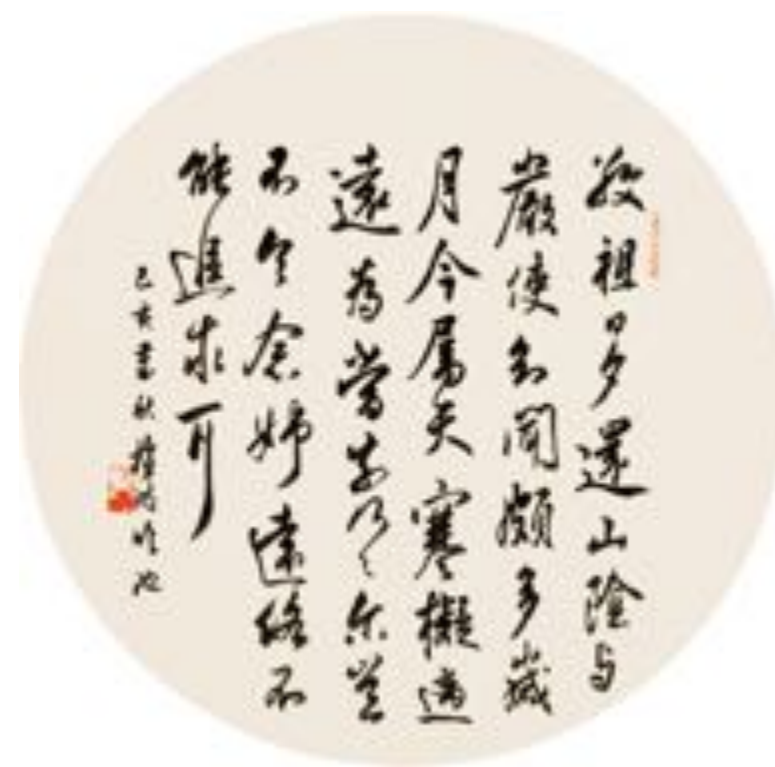 敬祖日夕還山陰与
嚴使君聞頗多歲
月今屬天寒擬適
遠為當奈何々尔豈
不令念姊遠路不
能追求耳
己亥秋